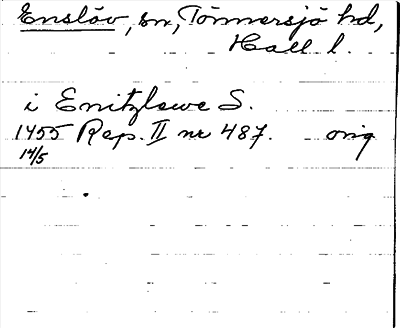 Enslöv, sn, Tönnersjö hd,
Hall l.
i Enitzlewe S.
1455 Rep. II nr 487. orig
14/5